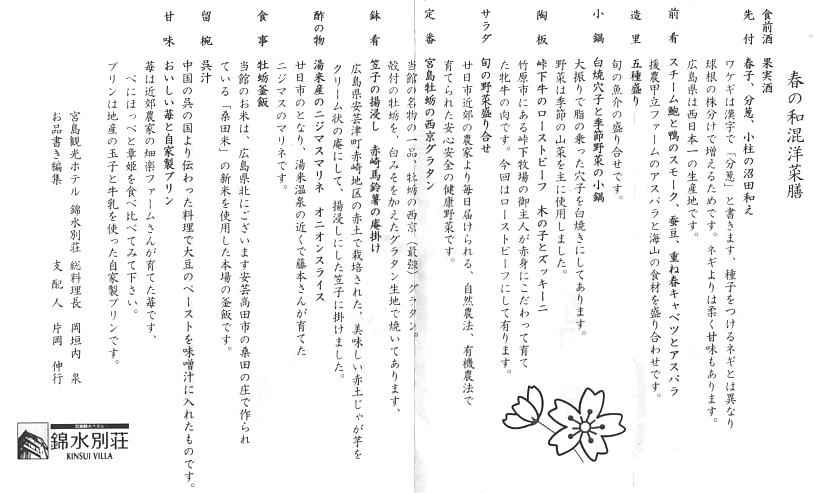 春の和混洋菜膳
食前酒 果実酒
先付 春子、分葱、小柱の沼田和え
ワケギは漢字で「分葱」と書きます、種子をつけるネギとは異なり
球根の株分けで増えるためです。ネギよりは柔く甘味もあります。
広島県は西日本一の生産地です。
前肴 スチーム鮑と鴨のスモーク、蚕豆、重ね春キャベツとアスパラ
援農甲立ファームのアスパラと海山の食材を盛り合わせです。
造里 五種盛り
旬の魚介の盛り合せです。
小鍋 白焼穴子と季節野菜の小鍋
大振りで脂の乗った穴子を白焼きにしてあります。
野菜は季節の山菜を主に使用しました。
陶板 峠下牛のローストビーフ 木の子とズッキーニ
竹原市にある峠下牧場の御主人が赤身にこだわって育て
た牝牛の肉です。今回はローストビーフにして有ります。
サラダ 旬の野菜盛り合せ
廿日市近郊の農家より毎日届けられる、自然農法、有機農法で
育てられた安心安全の健康野菜です。
定番 宮島牡蛎の西京グラタン
当館の名物の一品、牡蛎の西京（最強）グラタン。
殻付の牡蛎を、白みそを加えたグラタン生地で焼いてあります、
鉢肴 笠子の揚浸し 赤崎馬鈴薯の庵掛け
広島県安芸津町赤崎地区の赤土で栽培された、美味しい赤土じゃが芋を
クリーム状の庵にして、揚浸しにした笠子に掛けました。
酢の物 湯来産のニジマスマリネ オニオンスライス
廿日市のとなり、湯来温泉の近くで藤本さんが育てた
ニジマスのマリネです。
食事 牡蛎釜飯
当館のお米は、広島県北にございます安芸高田市の桑田の庄で作られ
ている「桑田米」の新米を使用した本場の釜飯です。
留椀 呉汁
中国の呉の国より伝わった料理で大豆のペーストを味噌汁に入れたものです。
甘味 おいしい苺と自家製プリン
苺は近郊農家の畑楽ファームさんが育てた苺です、
べにほっぺと章姫を食べ比べてみて下さい。
プリンは地産の玉子と牛乳を使った自家製プリンです。
宮島観光ホテル 錦水別荘 総料理長 岡垣内 泉
お品書き編集 支配人 片岡 伸行
宮島観光ホテル
錦水別荘
KINSUI VILLA